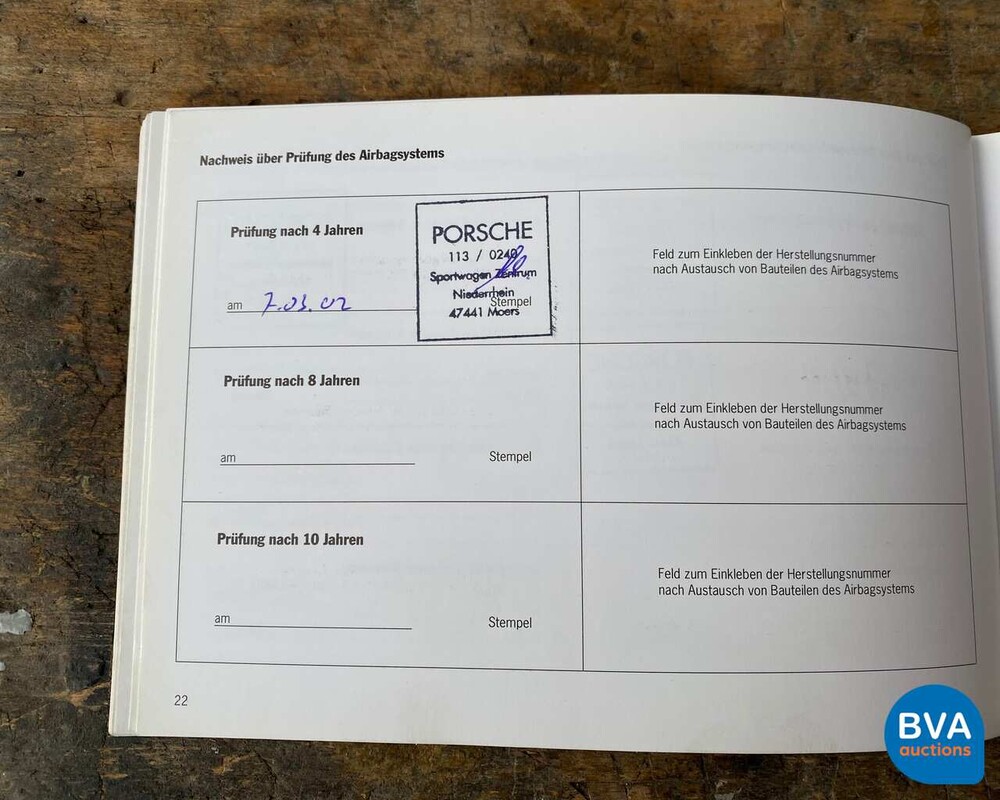 Nachweis über Prüfung des Airbagsystems
Prüfung nach 4 Jahren
am 7.03.02
PORSCHE
113 / 0240
Sportwagen Zentrum
Niederrhein
47441 Moers
Stempel
Feld zum Einkleben der Herstellungsnummer
nach Austausch von Bauteilen des Airbagsystems
Prüfung nach 8 Jahren
am
Stempel
Feld zum Einkleben der Herstellungsnummer
nach Austausch von Bauteilen des Airbagsystems
Prüfung nach 10 Jahren
am
Stempel
Feld zum Einkleben der Herstellungsnummer
nach Austausch von Bauteilen des Airbagsystems
22
BVA
auctions